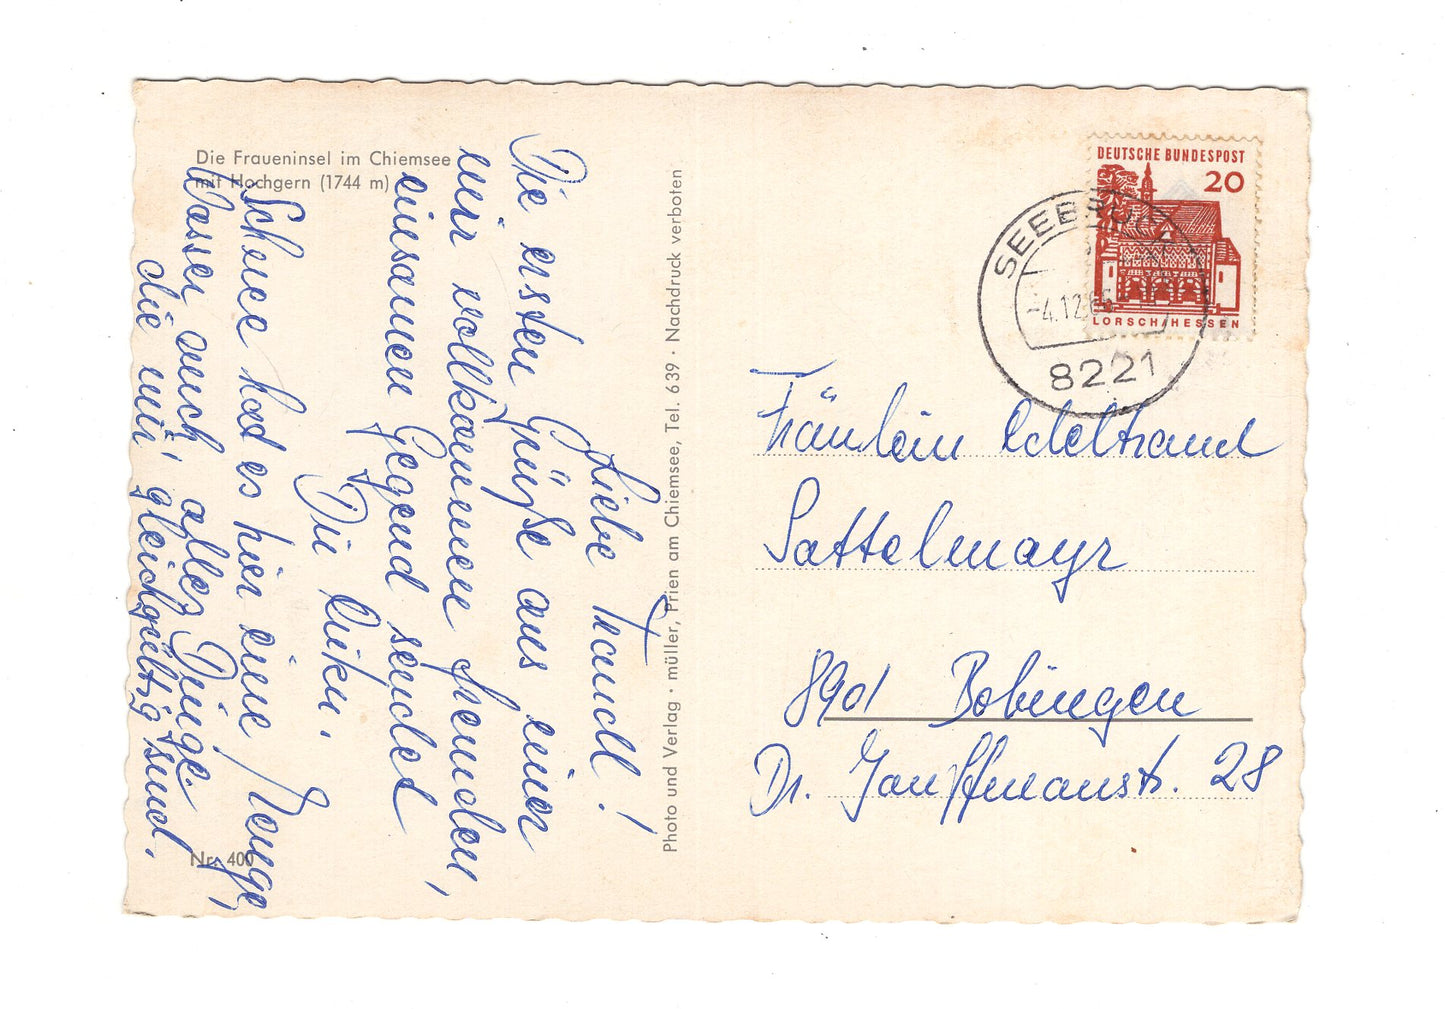 Die Fraueninsel im Chiemsee
mit Hochgern (1744 m)
Liebe Traudl!
Die ersten Grüße aus einer
mir vollkommen fremden,
einsamen Gegend sendet
Dir
Schnee hat es hier eine Menge,
Wasser auch, alles Dinge
die mir gleichgültig sind.
Nr. 400
Photo und Verlag · müller, Prien am Chiemsee, Tel. 639 · Nachdruck verboten
DEUTSCHE BUNDESPOST
20
LORSCH/HESSEN
SEEBRUCK
-4.12.65
8221
Fräulein Edeltraud
Sattelmayr
8901 Bobingen
Dr. 28